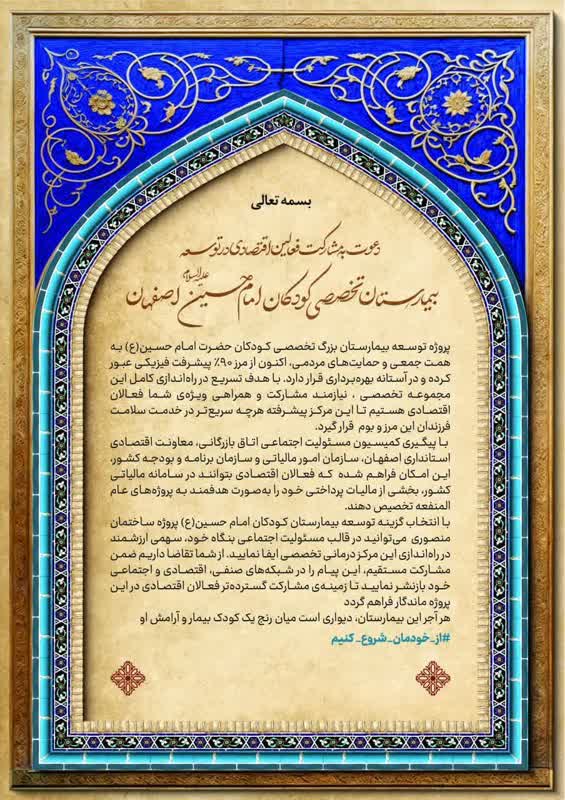 بسمه تعالی
دعوت به مشارکت فعالین اقتصادی در توسعه
بیمارستان تخصصی کودکان امام حسین علیه‌السلام اصفهان
پروژه توسعه بیمارستان بزرگ تخصصی کودکان حضرت امام حسین(ع) به
همت جمعی و حمایت‌های مردمی، اکنون از مرز ۹۰٪ پیشرفت فیزیکی عبور
کرده و در آستانه بهره‌برداری قرار دارد. با هدف تسریع در راه‌اندازی کامل این
مجموعه تخصصی ، نیازمند مشارکت و همراهی ویژه‌ی شما فعالان
اقتصادی هستیم تا این مرکز پیشرفته هرچه سریع‌تر در خدمت سلامت
فرزندان این مرز و بوم قرار گیرد.
با پیگیری کمیسیون مسئولیت اجتماعی اتاق بازرگانی، معاونت اقتصادی
استانداری اصفهان، سازمان امور مالیاتی و سازمان برنامه و بودجه کشور،
این امکان فراهم شده که فعالان اقتصادی بتوانند در سامانه مالیاتی
کشور، بخشی از مالیات پرداختی خود را به‌صورت هدفمند به پروژه‌های عام
المنفعه تخصیص دهند.
با انتخاب گزینه توسعه بیمارستان کودکان امام حسین(ع) پروژه ساختمان
منصوری می‌توانید در قالب مسئولیت اجتماعی بنگاه خود، سهمی ارزشمند
در راه‌اندازی این مرکز درمانی تخصصی ایفا نمایید. از شما تقاضا داریم ضمن
مشارکت مستقیم، این پیام را در شبکه‌های صنفی، اقتصادی و اجتماعی
خود بازنشر نمایید تا زمینه‌ی مشارکت گسترده‌تر فعالان اقتصادی در این
پروژه ماندگار فراهم گردد
هر آجر این بیمارستان، دیواری است میان رنج یک کودک بیمار و آرامش او
#از_خودمان_شروع_کنیم